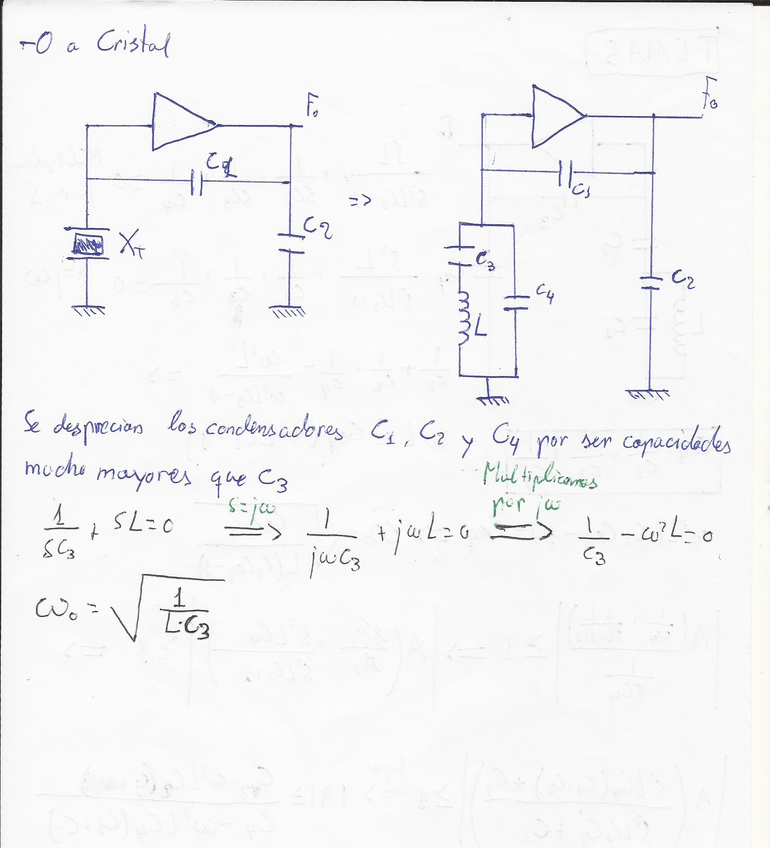 -O a Cristal
F₀
C1
C2
XT
=>
F₀
C1
C3
L
C4
C2
Se desprecian los condensadores C1, C2 y C4 por ser capacidades
mucho mayores que C3
1/SC3 + SL=0 s=jω ==> 1/jωC3 + jωL=0 Multiplicamos por jω ==> 1/C3 - ω²L=0
ω₀ = √(1/L·C3)